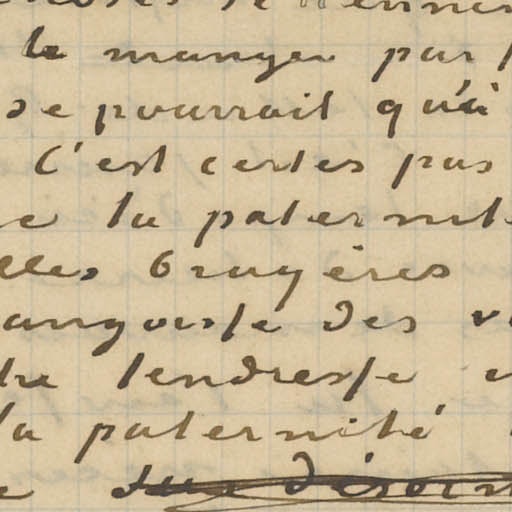 le manger par
se pourrait qu'à
C'est certes pas
la paternité
elles bruyères
angoisse des
tendresse
la paternité